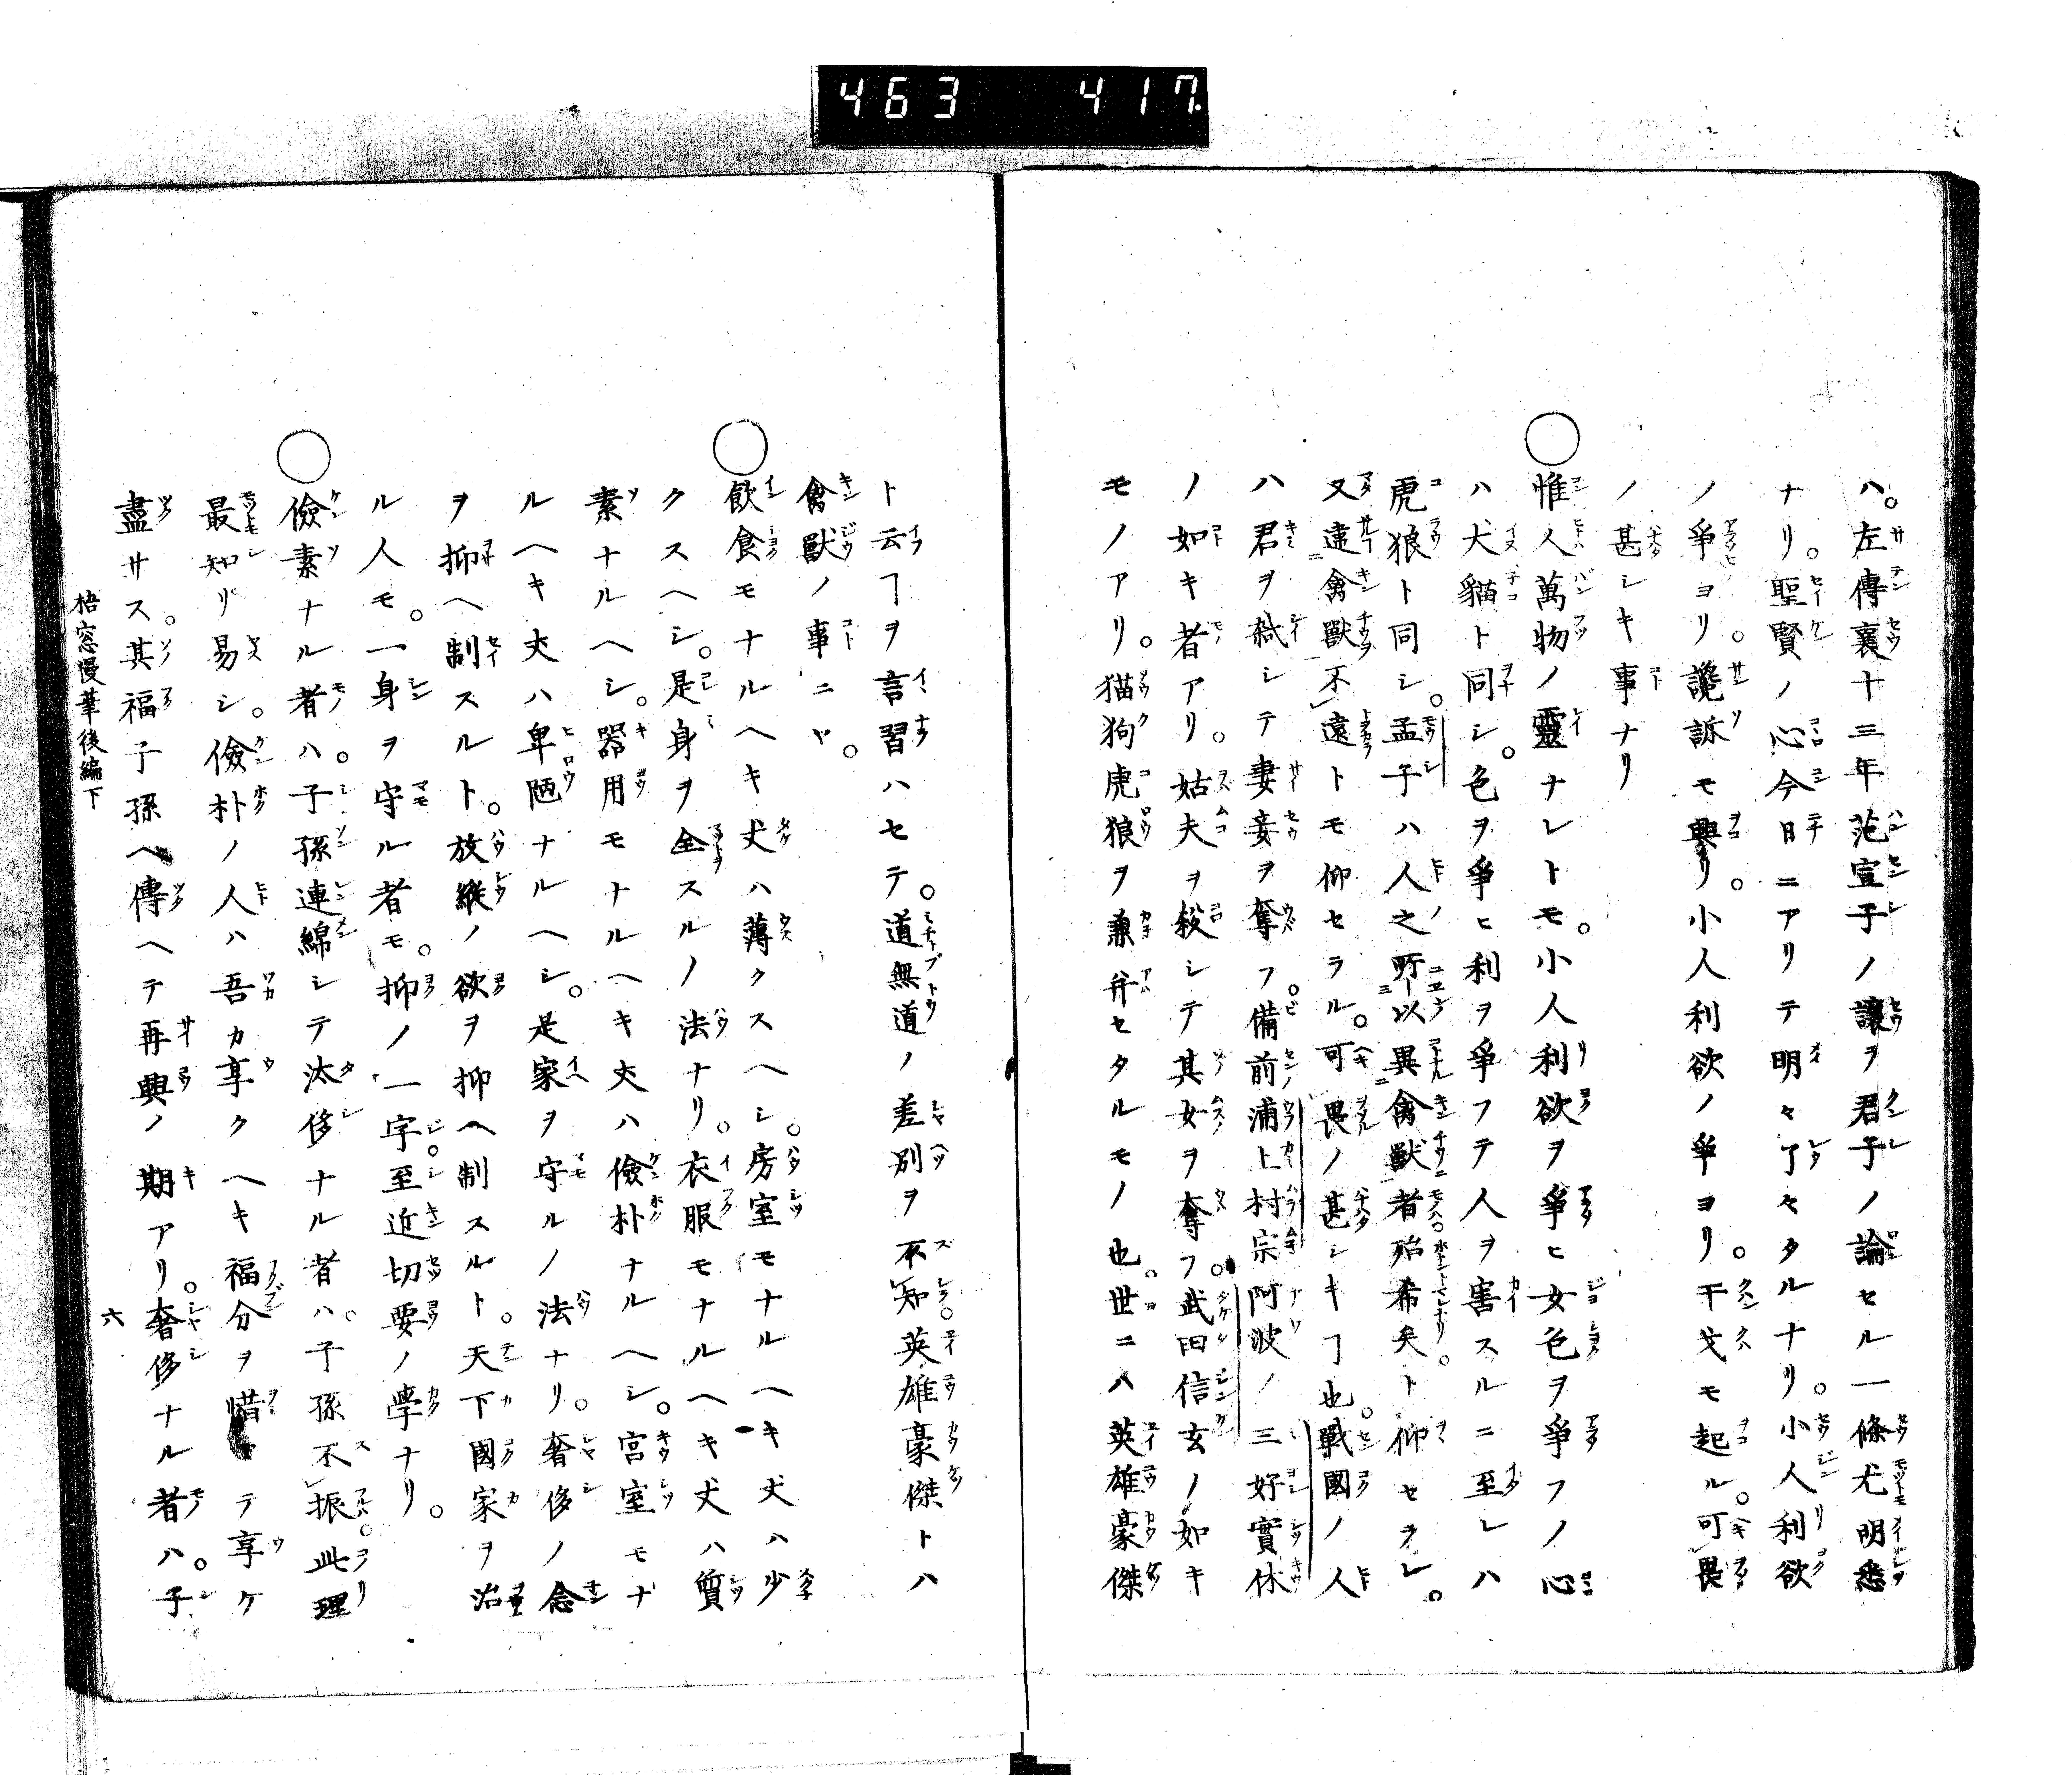 463 417
ハ。左傳襄十三年范宣子ノ讓ヲ君子ノ論セル一條尤明悉
ナリ。聖賢ノ心今日ニアリテ明々了々タルナリ。小人利欲
ノ爭ヨリ。讒訴モ興リ。小人利欲ノ爭ヨリ。干戈モ起ル。可畏
ノ甚シキ事ナリ
○惟人萬物ノ靈ナレトモ。小人利欲ヲ爭ヒ女色ヲ爭フノ心
ハ犬貓ト同シ。色ヲ爭ヒ利ヲ爭フテ人ヲ害スルニ至レハ
虎狼ト同シ。孟子ハ人之所以異禽獸者殆希矣ト仰セラレ。
又違禽獸不遠トモ仰セラル。可畏ノ甚シキヿ也。戰國ノ人
ハ君ヲ弒シテ妻妾ヲ奪フ。備前浦上村宗阿波ノ三好實休
ノ如キ者アリ。姑夫ヲ殺シテ其女ヲ奪フ。武田信玄ノ如キ
モノアリ。猫狗虎狼ヲ兼并セタルモノ也。世ニハ英雄豪傑
ト云ヿヲ言習ハセテ。道無道ノ差別ヲ不知英雄豪傑トハ
禽獸ノ事ニヤ。
○飲食モナルヘキ丈ハ薄クスヘシ。房室モナルヘキ丈ハ少
クスヘシ。是身ヲ全スルノ法ナリ。衣服モナルヘキ丈ハ質
素ナルヘシ。器用モナルヘキ丈ハ儉朴ナルヘシ。宮室モナ
ルヘキ丈ハ卑陋ナルヘシ。是家ヲ守ルノ法ナリ。奢侈ノ念
ヲ抑ヘ制スルト。放縱ノ欲ヲ抑ヘ制スルト。天下國家ヲ治
ル人モ。一身ヲ守ル者モ。抑ノ一字至近切要ノ學ナリ。
○儉素ナル者ハ。子孫連綿シテ汰侈ナル者ハ。子孫不振。此理
最知リ易シ。儉朴ノ人ハ吾カ享クヘキ福分ヲ惜テ享ケ
盡サス。其福子孫ヘ傳ヘテ再興ノ期アリ。奢侈ナル者ハ。子
梧窓漫筆後編下 六